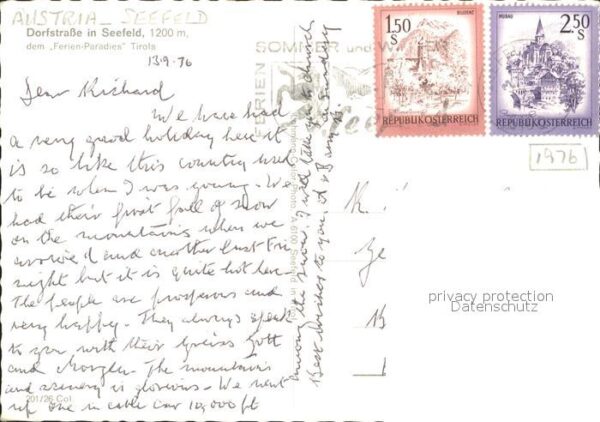 AUSTRIA - SEEFELD
Dorfstraße in Seefeld, 1200 m,
dem „Ferien-Paradies" Tirols
13.9.76
Dear Richard
We have had
a very good holiday here it
is so like this country used
to be when I was young. We
had their first fall of snow
on the mountains when we
arrived and another last Fri
night but it is quite hot here.
The people are prosperous and
very happy. They always speak
to you with their Greiss Gott
and Morgen. The mountains
and scenery is glorious. We went
up one in cable car 10,000 ft
among the snow. I will
Best wishes to you.
201/26 Col.
FERIEN
SOMMER und WINTER
See
1.50
S
BLUDENZ
REPUBLIK ÖSTERREICH
2.50
S
MURAU
REPUBLIK ÖSTERREICH
1976
privacy protection
Datenschutz